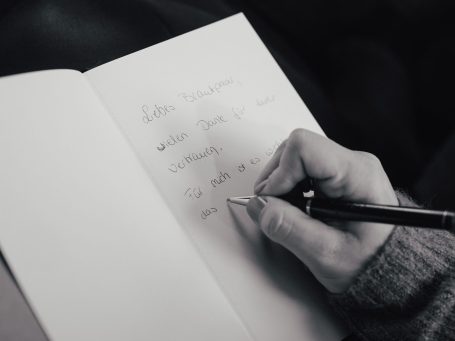 Liebes Brautpaar,
vielen Dank für euer
vertrauen.
Für mich ist es
das